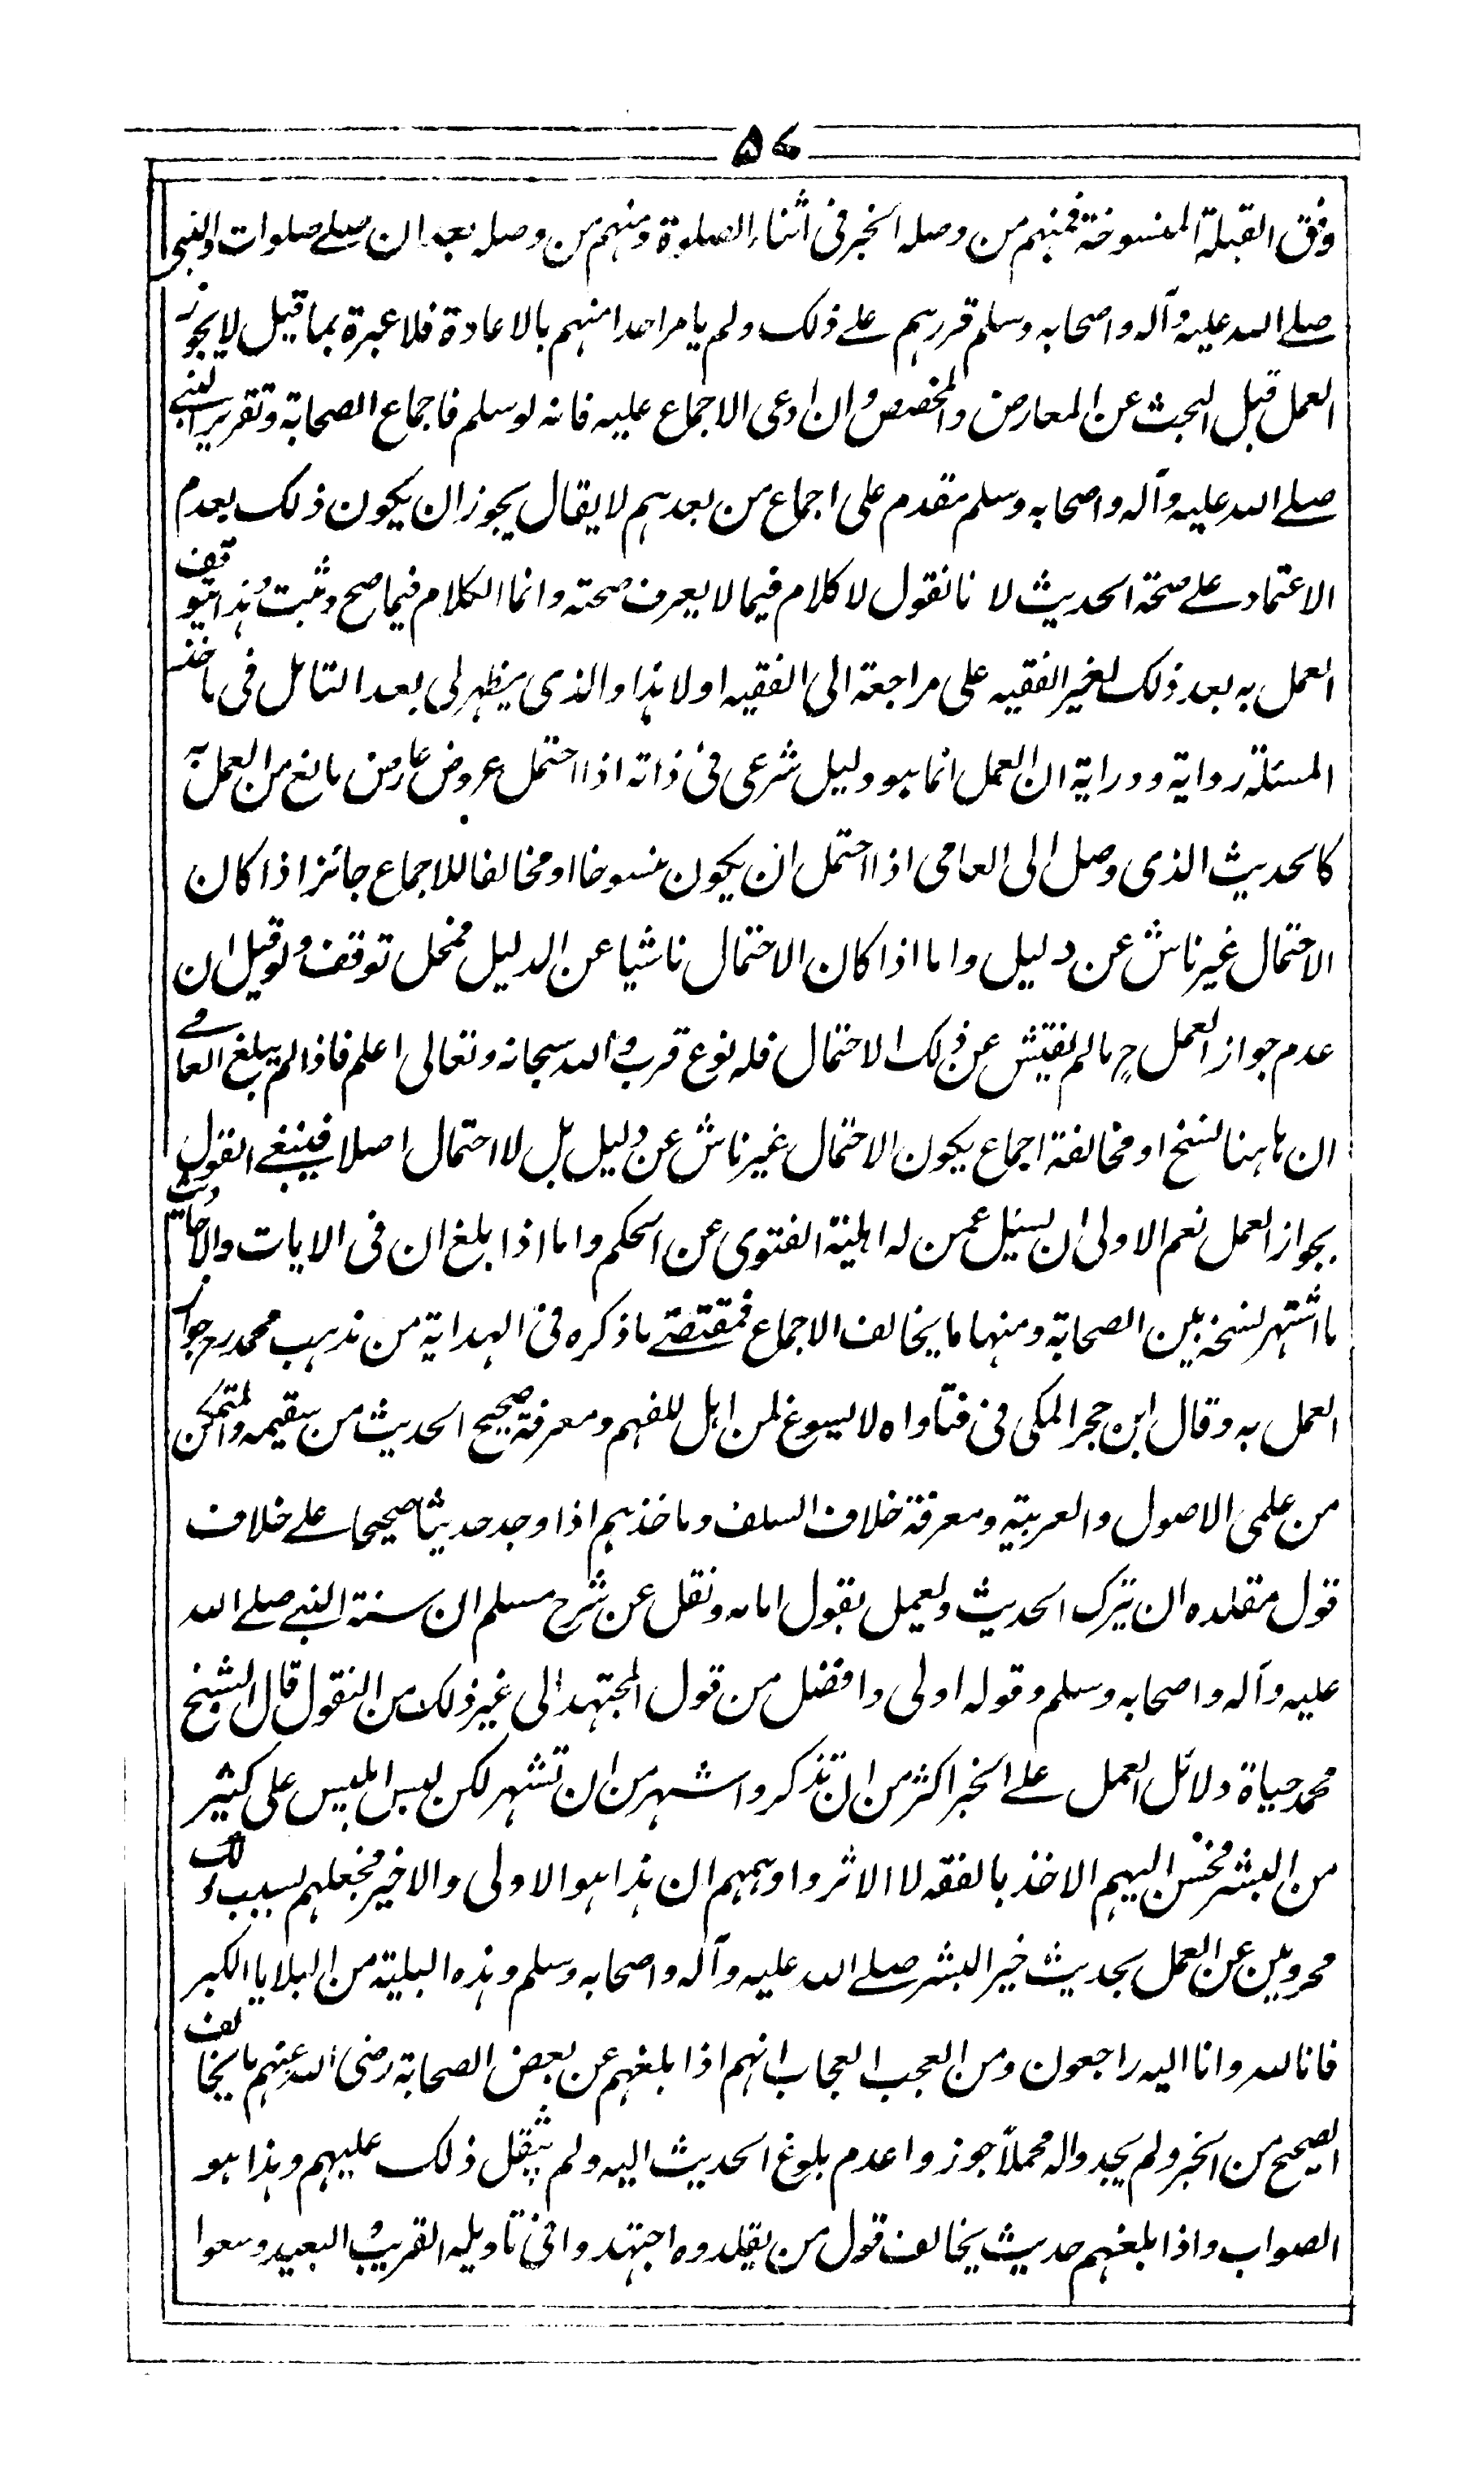 ۵۷
وفق القبلة المنسوخة فمنهم من وصله الخبر فى اثناء الصلوة ومنهم من وصل بعد ان صلے صلوات والنبى
صلے الله عليه وآله واصحابه وسلم قررهم علے ذلك ولم يامر احدا منهم بالاعادة فلا عبرة بما قيل لا يجوز
العمل قبل البحث عن المعارض والمخصص وان ادعى الاجماع عليه فانه لو سلم فاجماع الصحابة وتقرير النبے
صلے الله عليه وآله واصحابه وسلم مقدم على اجماع من بعدهم لا يقال يجوز ان يكون ذلك بعدم
الاعتماد علے صحة الحديث لا نا نقول لا كلام فيما لا يعرف صحته وانما الكلام فيما صح وثبت وهذا يتوقف
العمل به بعد ذلك لغير الفقيه على مراجعة الى الفقيه اولا هذا والذى يظهر لى بعد التامل فى ماخذ
المسئلة رواية ودراية ان العمل انما هو دليل شرعى فى ذاته اذا احتمل عروض عارض مانع من العمل به
كالحديث الذى وصل الى العامى اذا احتمل ان يكون منسوخا او مخالفا للاجماع جائز اذا كان
الاحتمال غير ناش عن دليل واما اذا كان الاحتمال ناشيا عن الدليل فمحل توقف ولو قيل ان
عدم جواز العمل ح مالم يفتش عن ذلك الاحتمال فله نوع قرب والله سبحانه وتعالى اعلم فاذا لم يبلغ العامے
ان هاهنا نسخ او مخالفة اجماع يكون الاحتمال غير ناش عن دليل بل لا احتمال اصلا فينبغے القول
بجواز العمل نعم الاولى ان يسئل عمن له اهلية الفتوى عن الحكم واما اذا بلغ ان فى الايات والاحاديث
ما اشتهر نسخه بين الصحابة ومنها ما يخالف الاجماع فمقتضے ما ذكره فى الهداية من مذهب محمد رح جواز
العمل به وقال ابن حجر المكى فى فتاواه لا يسوغ لمن اهل للفهم ومعرفة صحيح الحديث من سقيمه والتمكن
من علمى الاصول والعربية ومعرفة خلاف السلف وماخذهم اذا وجد حديثا صحيحا علے خلاف
قول مقلده ان يترك الحديث ويعمل بقول امامه ونقل عن شرح مسلم ان سنة النبے صلے الله
عليه وآله واصحابه وسلم وقوله اولى وافضل من قول المجتهد الى غير ذلك من النقول قال الشيخ
محمد حياة دلائل العمل علے الخبر اكثر من ان تذكر واشهر من ان تشهر لكن لبس ابليس على كثير
من البشر فحسن اليهم الاخذ بالفقه لا الاثر واوهمهم ان هذا هو الاولى والاخير فجعلهم بسبب ذلك
محرومين عن العمل بحديث خير البشر صلے الله عليه وآله واصحابه وسلم وهذه البلية من البلايا الكبر
فانا لله وانا اليه راجعون ومن العجب العجاب انهم اذا بلغهم عن بعض الصحابة رضى الله عنهم ما يخالف
الصحيح من الخبر ولم يجدوا له محملاً جوزوا عدم بلوغ الحديث اليه ولم يثقل ذلك عليهم وهذا هو
الصواب واذا بلغهم حديث يخالف قول من يقلدوه اجتهدوا فى تاويله القريب البعيد وسعوا